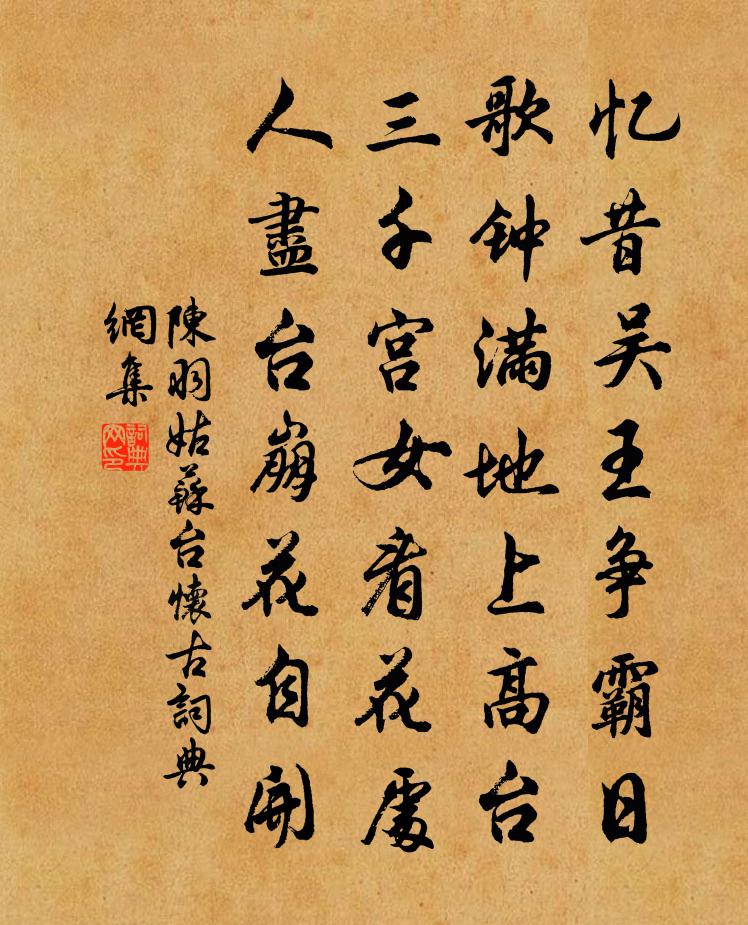 忆昔吴王争霸日
歌钟满地上高台
三千宫女看花处
人盡台崩花自開
陳羽姑蘇台懷古詞典
網集
詞典
网印